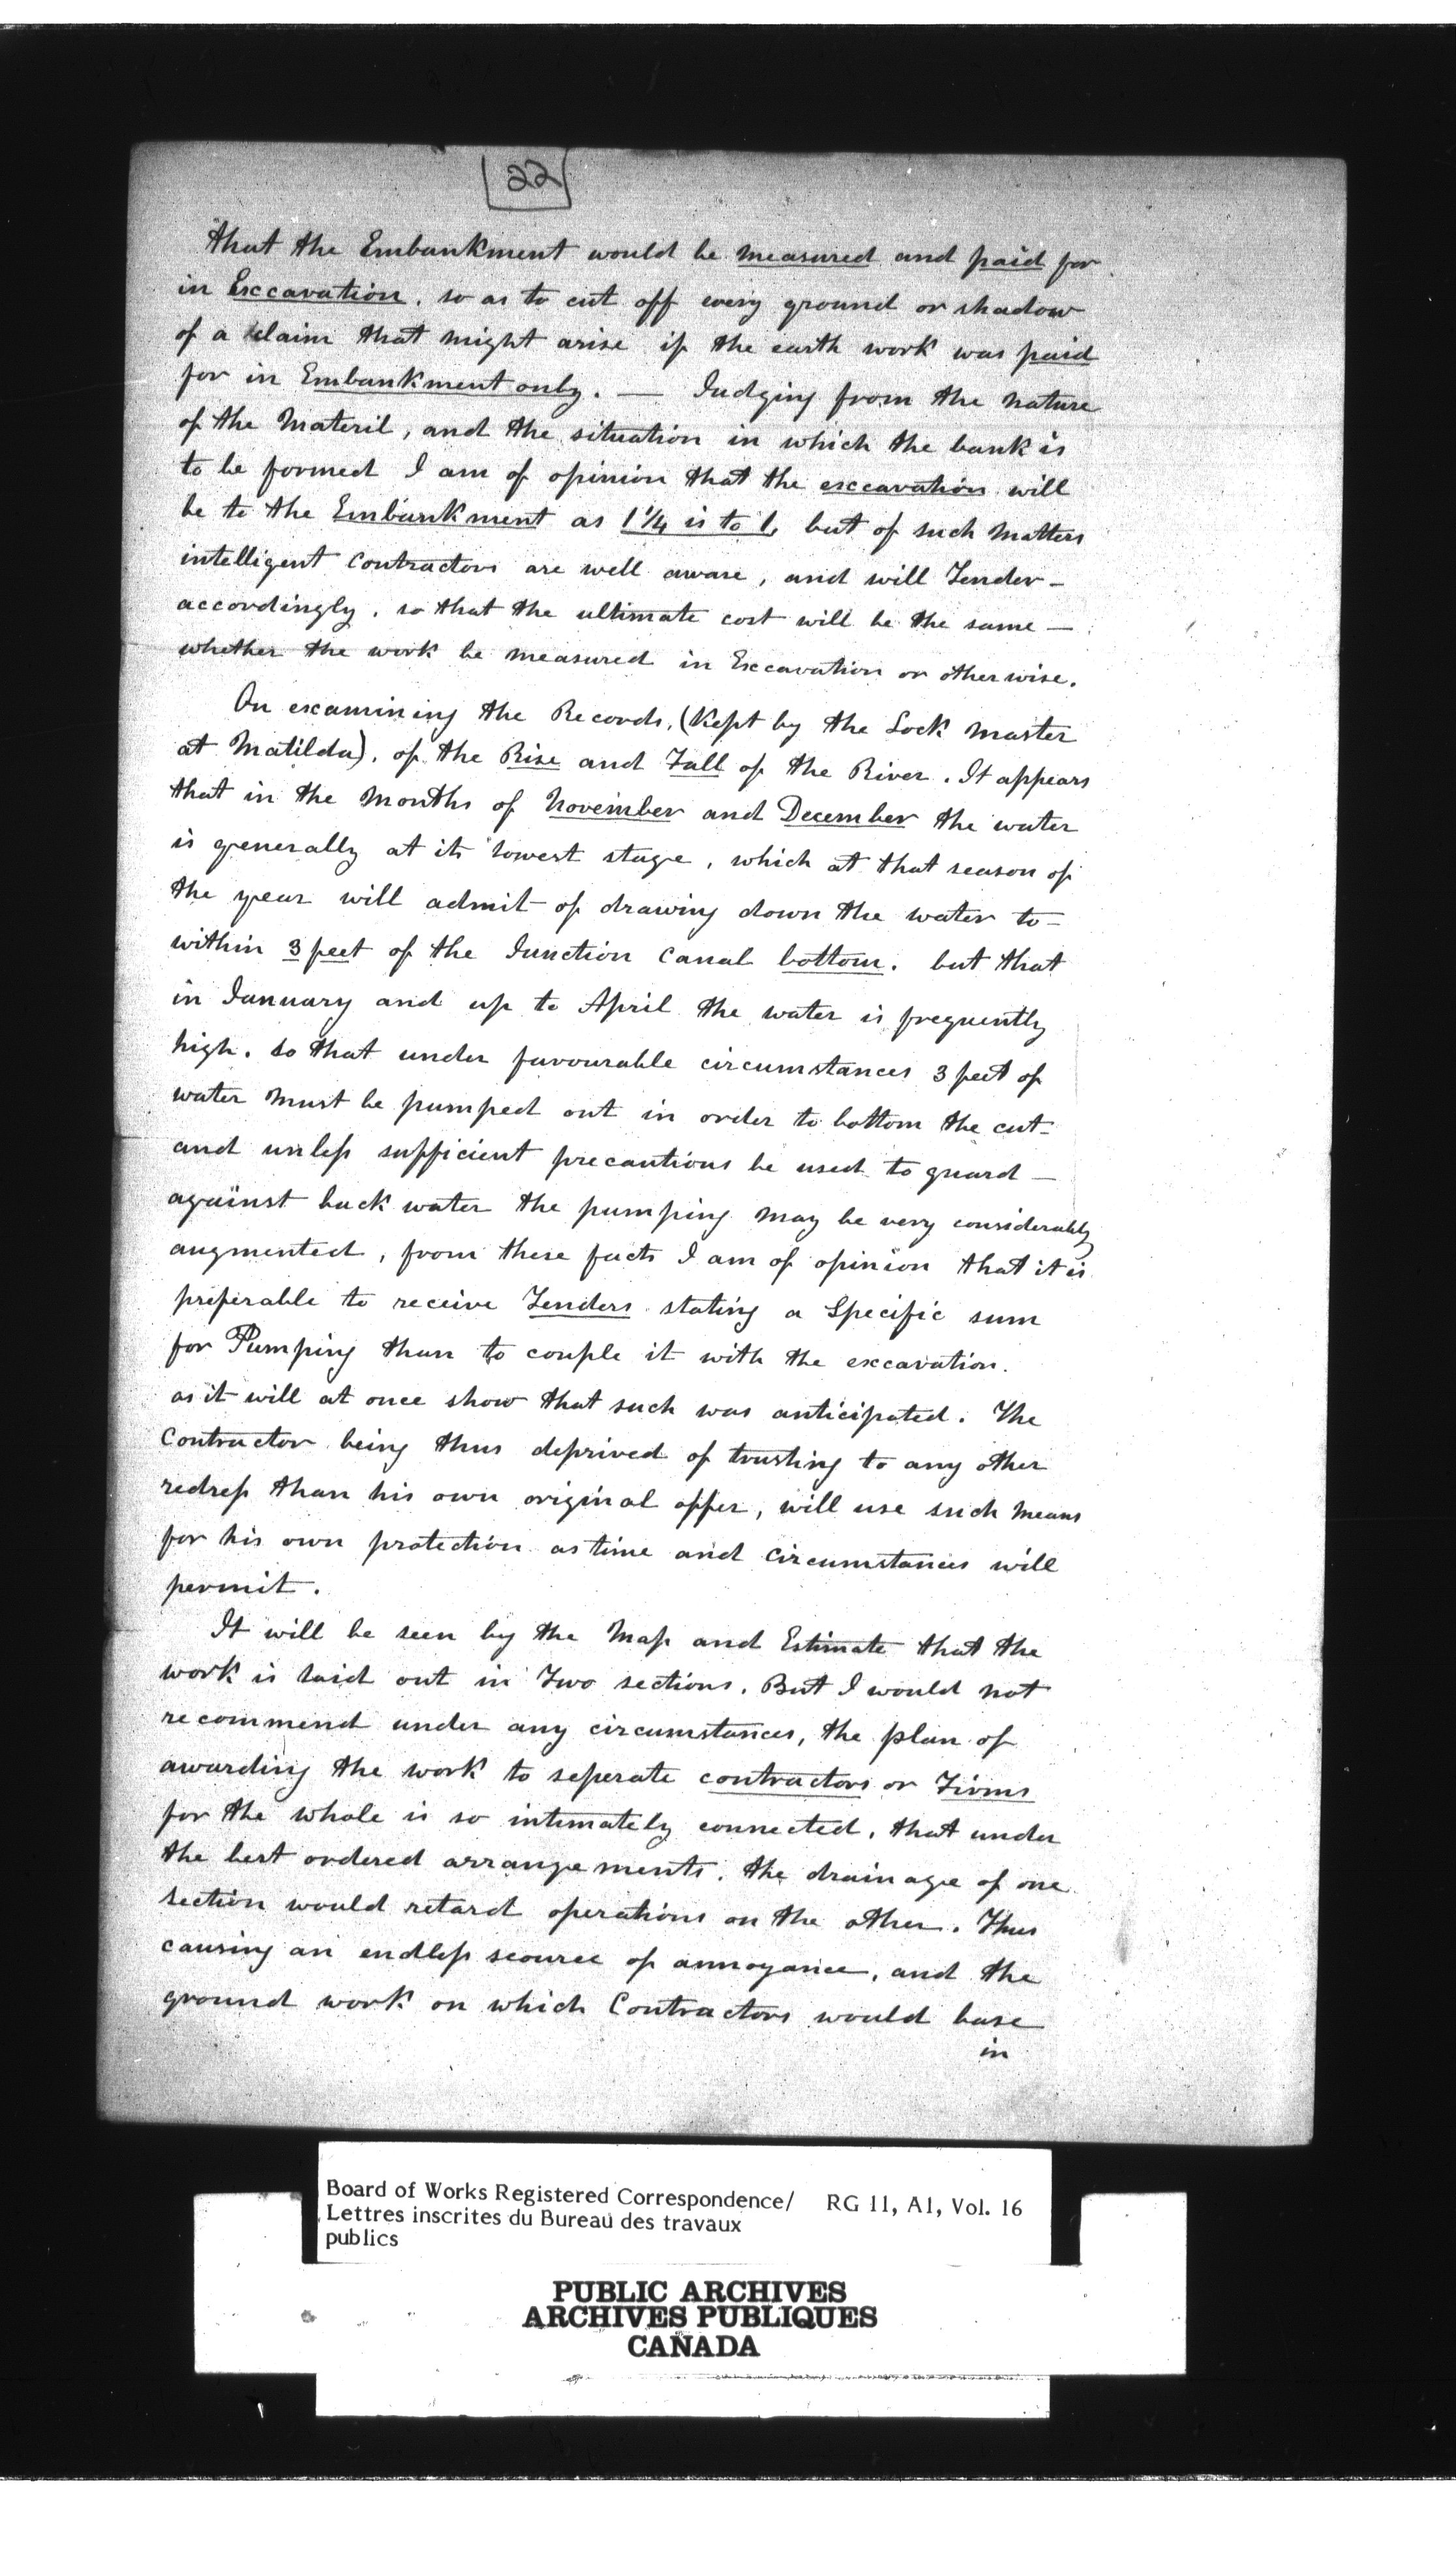 22
that the Embankment would be measured and paid for
in Excavation. so as to cut off every ground or shadow
of a claim that might arise if the earth work was paid
for in Embankment only. — Judging from the nature
of the Materil, and the situation in which the bank is
to be formed I am of opinion that the excavation will
be to the Embankment as 1 1/4 is to 1, but of such matters
intelligent Contractors are well aware, and will Tender -
accordingly. so that the ultimate cost will be the same —
whether the work be measured in Excavation or otherwise.
On examining the Records, (Kept by the Lock Master
at Matilda). of the Rise and Fall of the River. It appears
that in the Months of November and December the water
is generally at its lowest stage, which at that season of
the year will admit of drawing down the water to -
within 3 feet of the Junction Canal bottom. but that
in January and up to April the water is frequently
high. so that under favourable circumstances 3 feet of
water must be pumped out in order to bottom the cut -
and unless sufficient precautions be used to guard —
against back water the pumping may be very considerably
augmented, from these facts I am of opinion that it is
preferable to receive Tenders stating a Specific sum
for Pumping than to couple it with the excavation.
as it will at once show that such was anticipated. The
Contractor being thus deprived of trusting to any other
redress than his own original offer, will use such means
for his own protection as time and circumstances will
permit.
It will be seen by the Map and Estimate that the
work is laid out in Two sections. But I would not
recommend under any circumstances, the plan of
awarding the work to seperate contractors or Firms
for the whole is so intimately connected, that under
the best ordered arrangements. the drainage of one
section would retard operations on the other. Thus
causing an endless scource of annoyance, and the
ground work on which Contractors would base
in
Board of Works Registered Correspondence/ RG 11, A1, Vol. 16
Lettres inscrites du Bureau des travaux
publics
PUBLIC ARCHIVES
ARCHIVES PUBLIQUES
CANADA